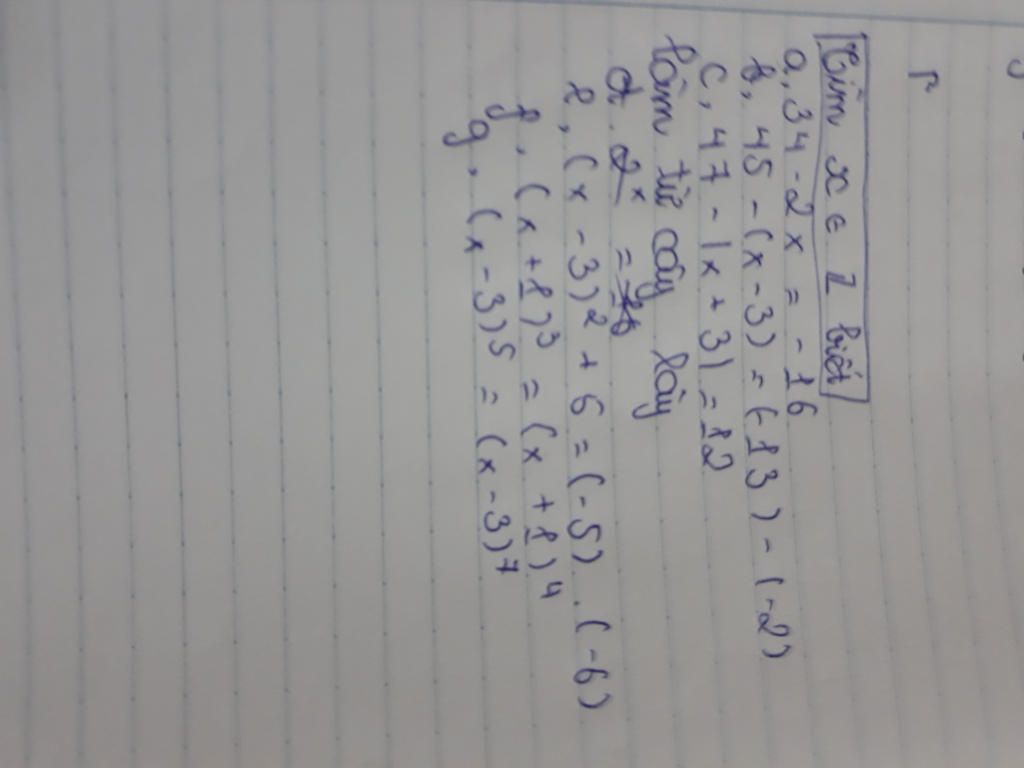 Tìm x ∈ Z biết
a, 34 - 2x = -16
b, 45 - (x - 3) = (-13) - (-2)
c, 47 - |x + 3| = 12
làm từ đây
d. 2x =
e, (x - 3)² + 6 = (-5) . (-6)
f, (x + 1)³ = (x + 1)⁴
g, (x - 3)⁵ = (x - 3)⁷